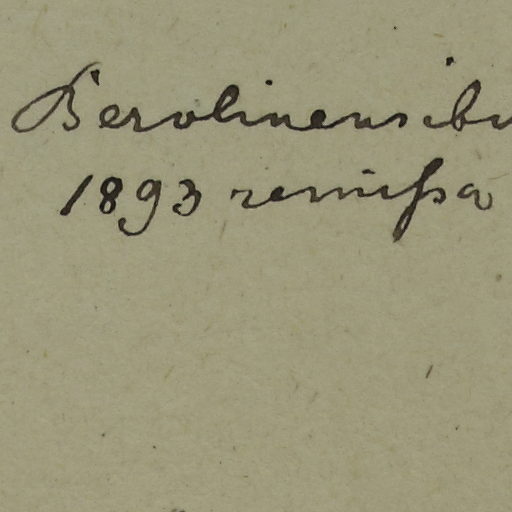 Berolinensibu
1893 remissa